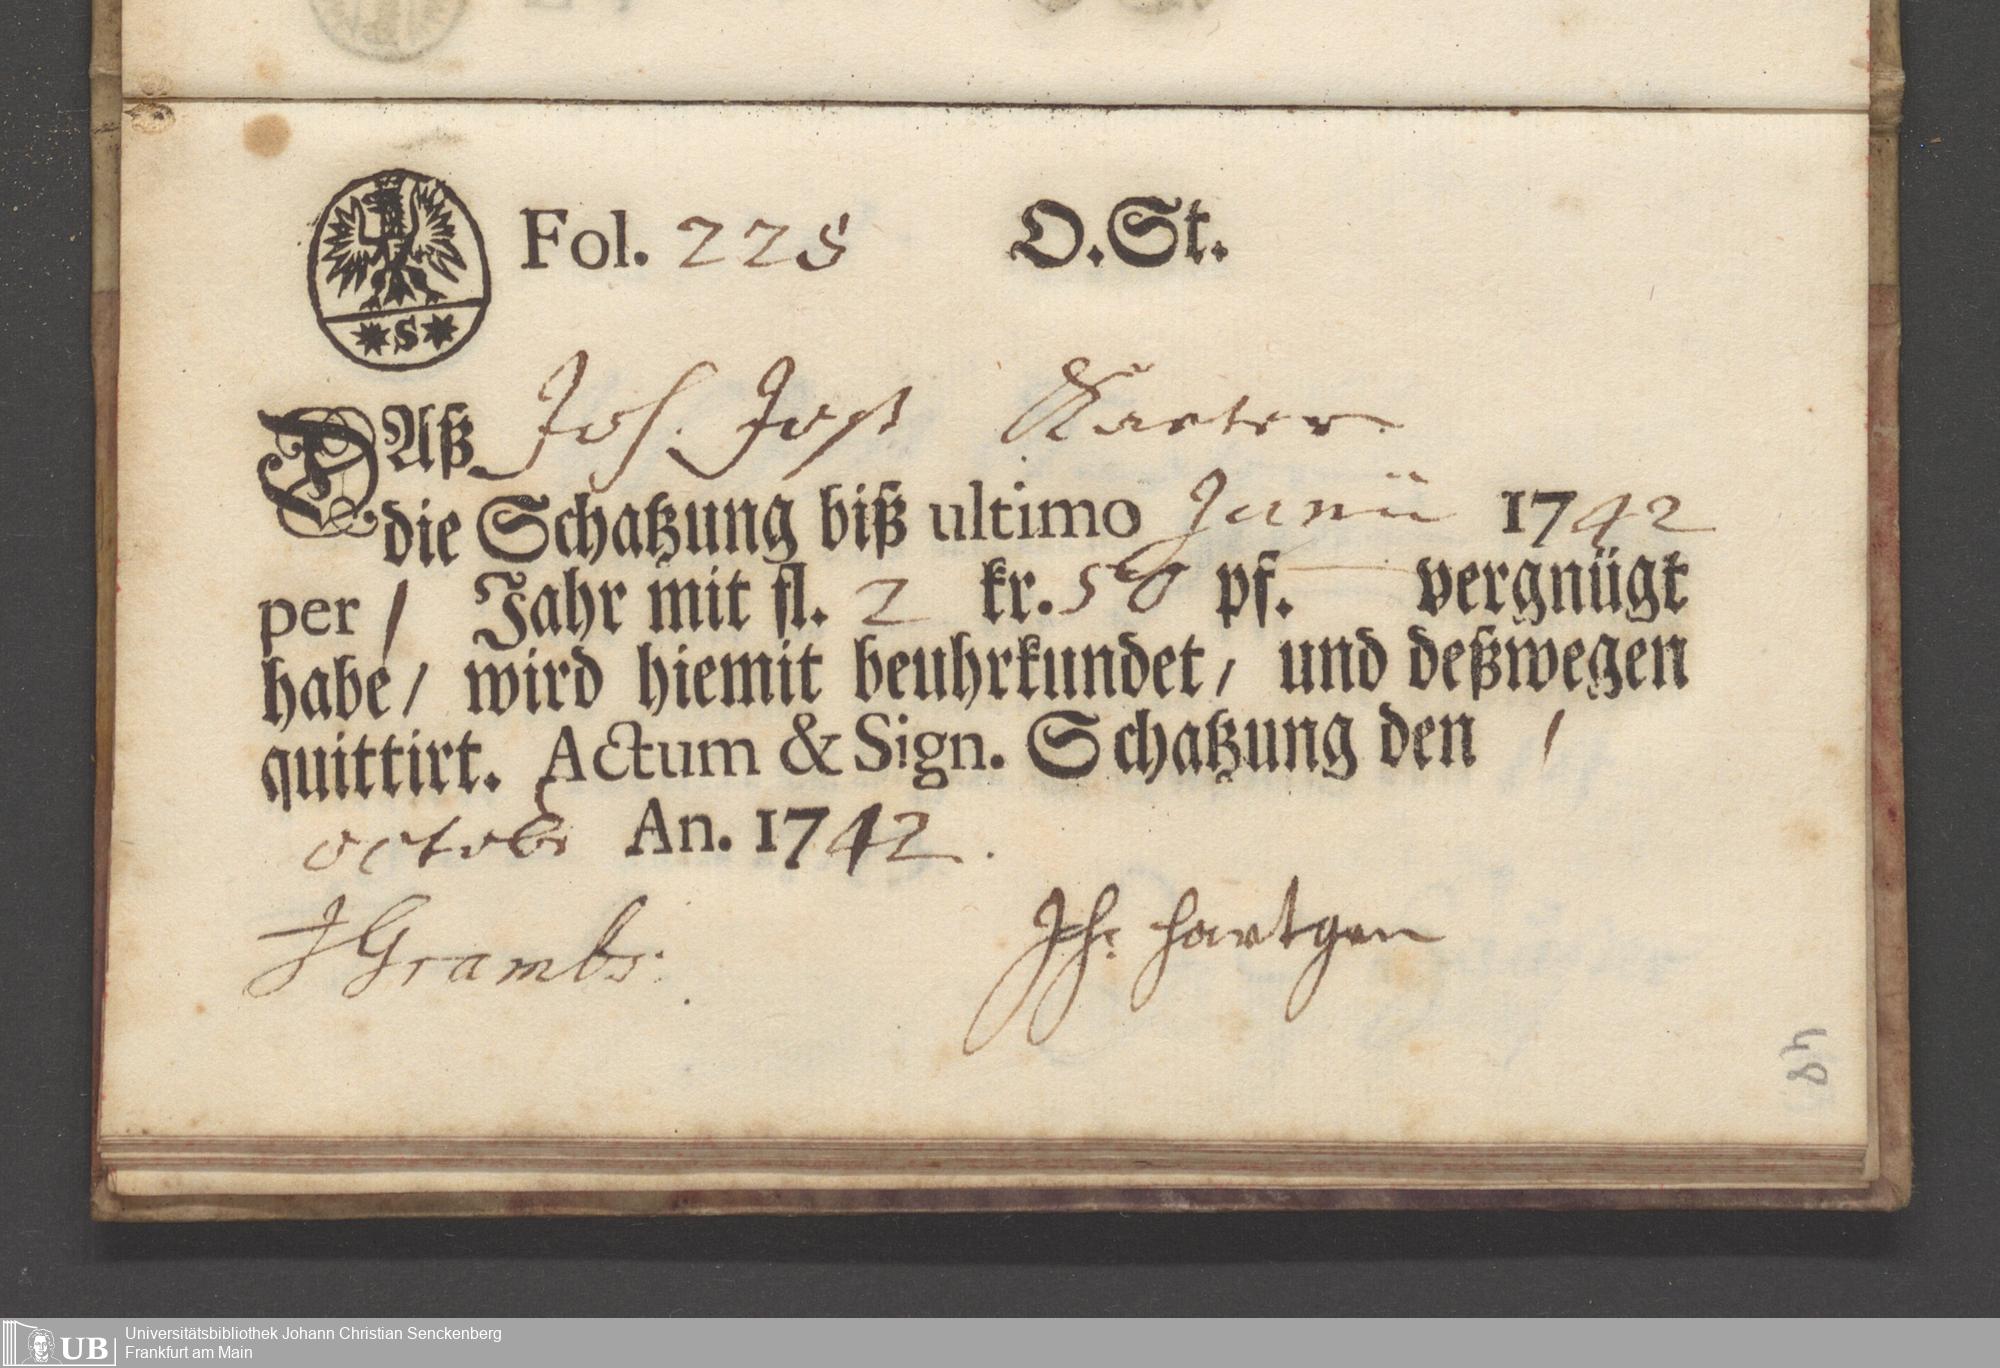 Fol. 225 O.St.
*S*
DAß Joh. Jost Karter
die Schatzung biß ultimo Junii 1742
per 1 Jahr mit fl. 2 kr. 50 pf. vergnügt
habe/ wird hiemit beuhrkundet, und deßwegen
quittirt. Actum & Sign. Schatzung den 1
octobr An. 1742.
JGrambs. Joh. Hartgen
48
UB Universitätsbibliothek Johann Christian Senckenberg
Frankfurt am Main